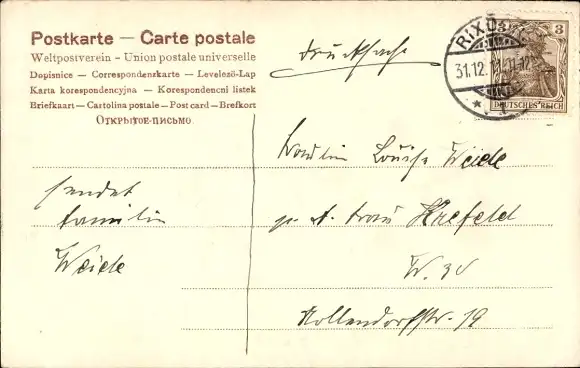 Postkarte — Carte postale
Weltpostverein - Union postale universelle
Dopisnice — Correspondenzkarte — Levelező-Lap
Karta korespondencyjna — Korespondencni listek
Briefkaart — Cartolina postale — Post card — Brefkort
Открытое письмо
Drucksache
RIXDORF
31.12.11. 11-12
3
DEUTSCHES REICH
Fräulein Louise Weide
p. A. Frau Krefeld
W. 30
Nollendorfstr. 19
sendet
Familie
Weide